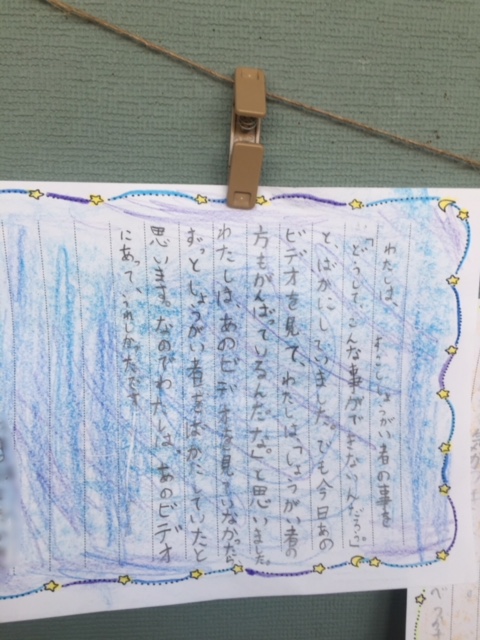 わたしは、すこししょうがい者の事を
「どうして、こんな事ができないんだろう。」
と、ばかにしていました。でも今日あの
ビデオを見て、わたしは、「しょうがい者の
方もがんばっているんだな。」と思いました。
わたしは、あのビデオを見ていなかったら
ずっとしょうがい者をばかにしていたと
思います。なのでわたしは、あのビデオ
にあって、うれしかったです。